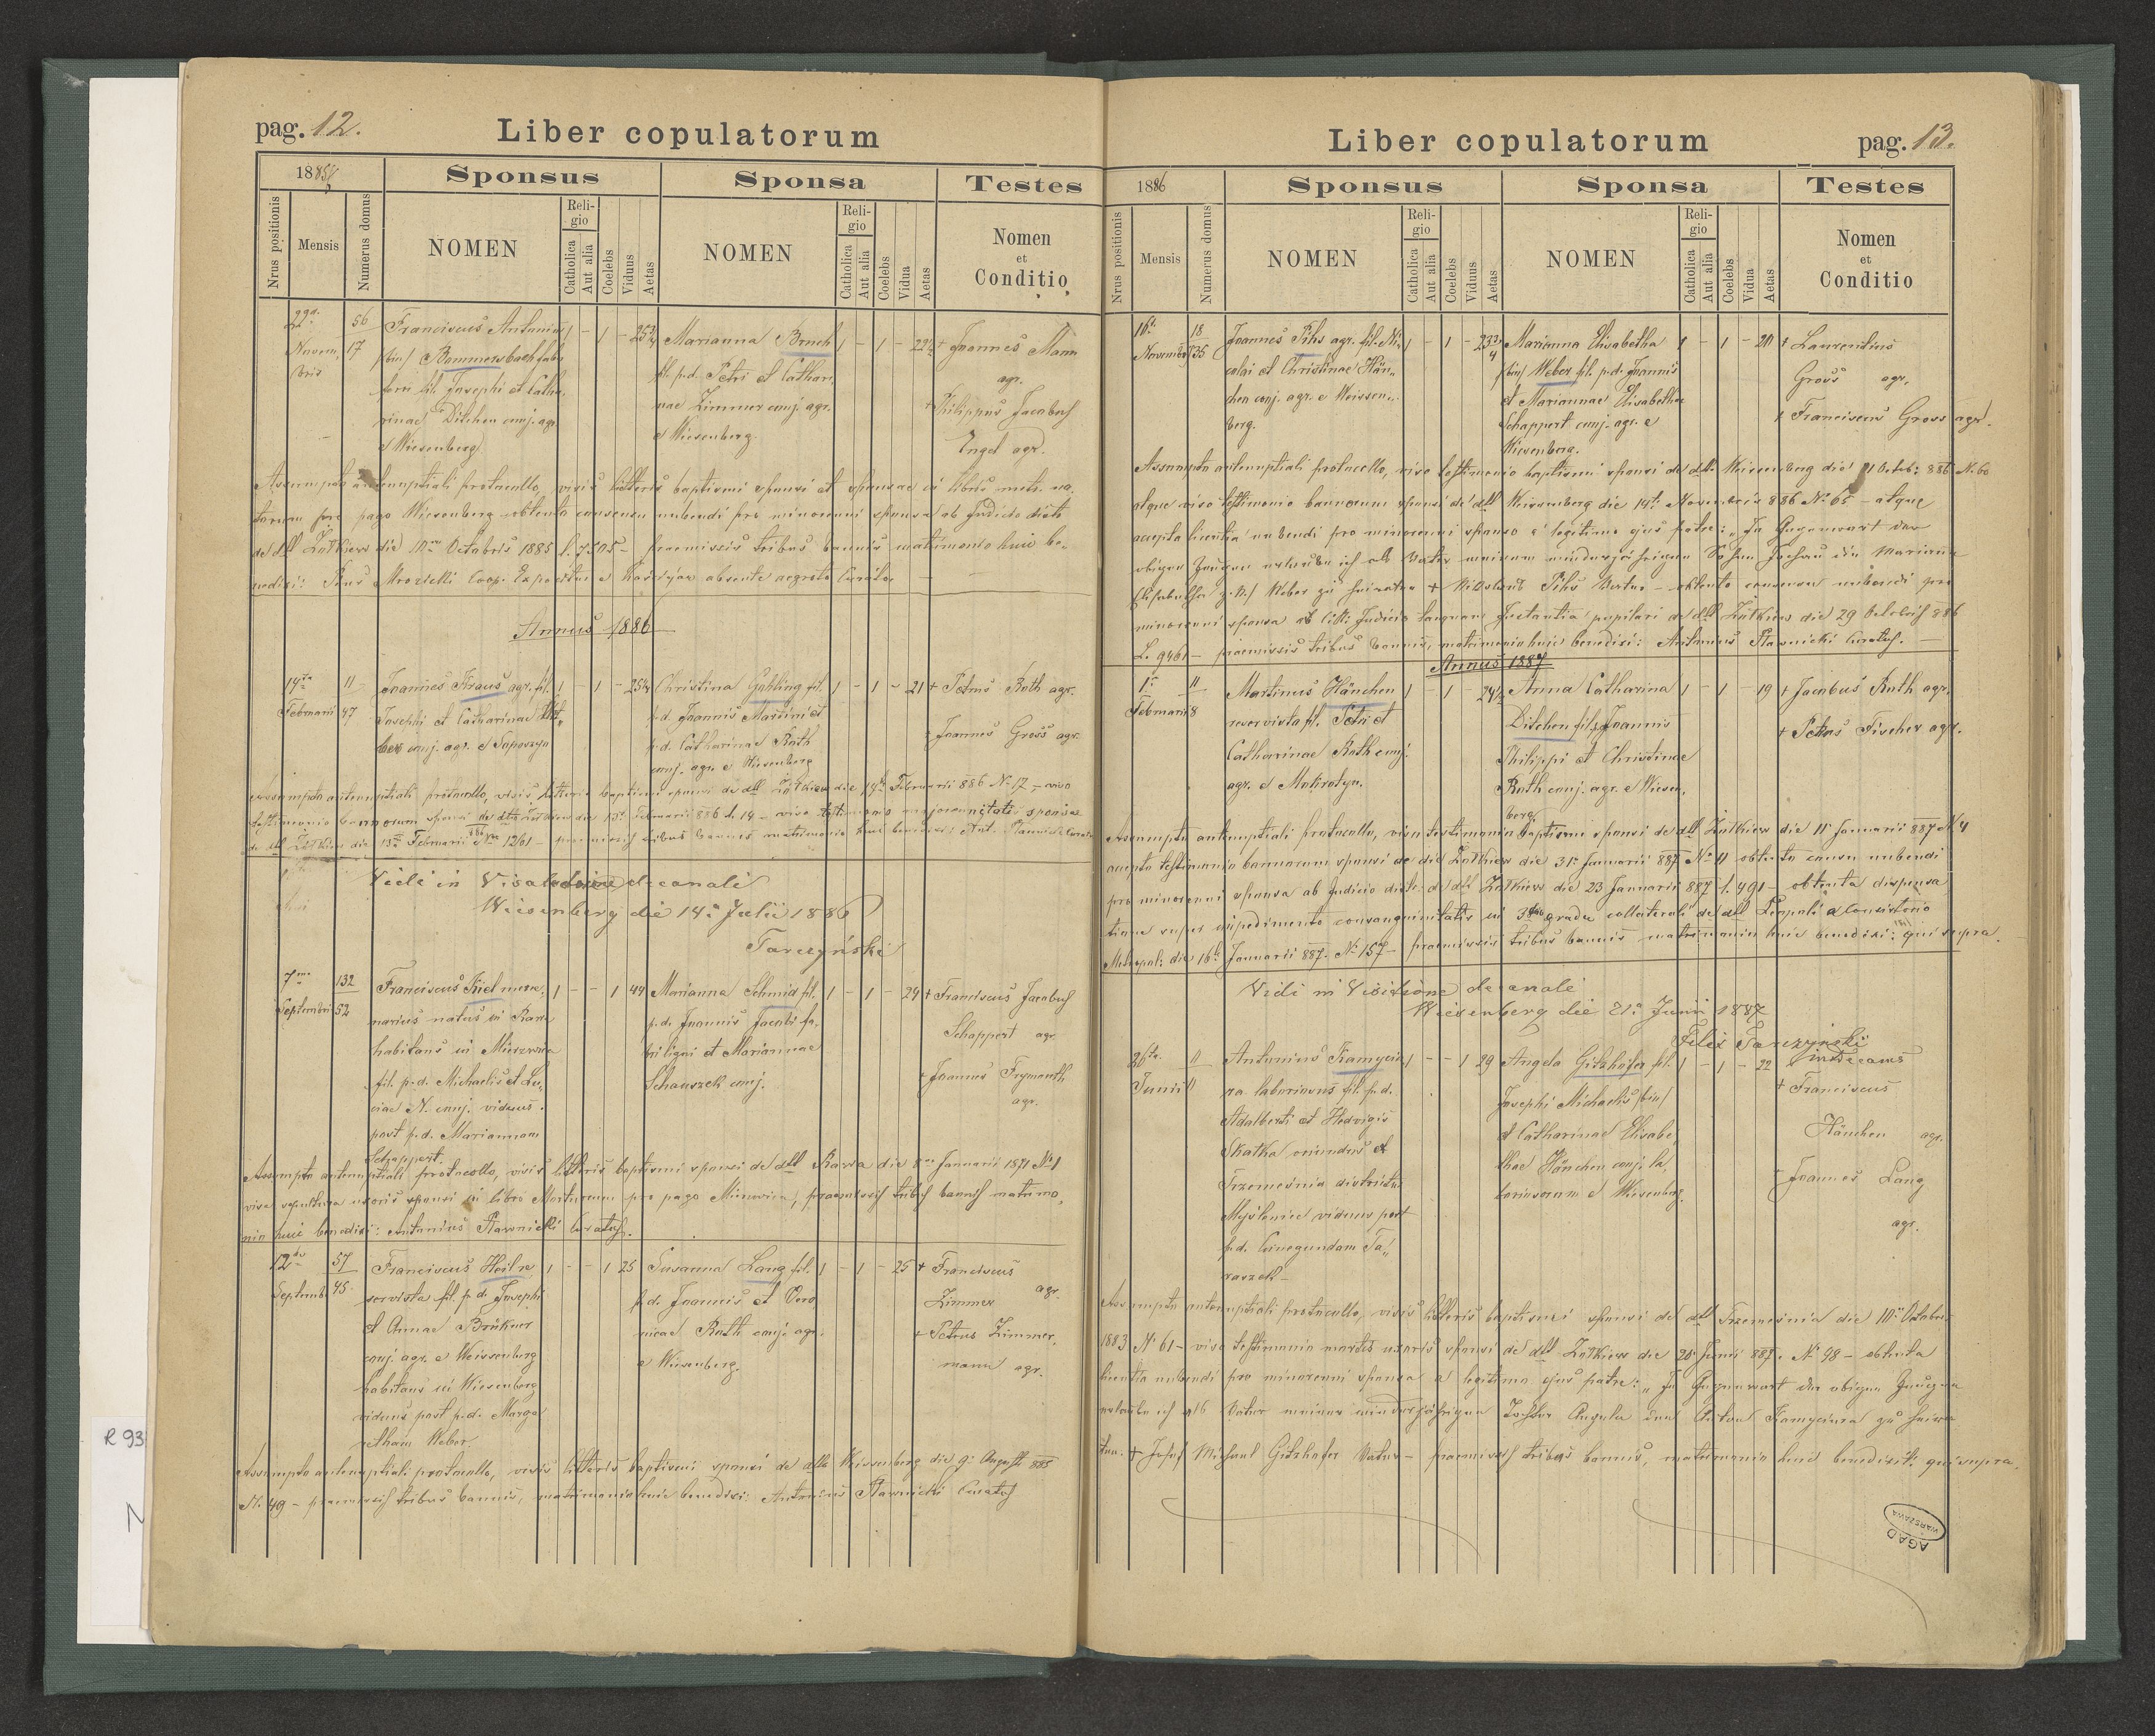 pag. 12.
Liber copulatorum
1885/6
Sponsus
Sponsa
Testes
Nrus positionis
Mensis
Numerus domus
NOMEN
Religio
Catholica
Aut alia
Coelebs
Viduus
Aetas
NOMEN
Religio
Catholica
Aut alia
Coelebs
Vidua
Aetas
Nomen
et
Conditio
22a
Novembris
56
17
Franciscus Antonius
(bin) Bommersbach faber
fil. Josephi et Catharinae
Ditchen conj. agr.
e Wiesenberg
1 - 1 - 25 3/4
Marianna Bruch
fil. p.d. Petri et Catharinae
Zimmer conj. agr.
e Wiesenberg.
1 - 1 - 22 1/2
+ Joannes Mann
agr.
+ Philippus Jacobus
Engel agr.
Assumpto antenuptiali protocollo, visis litteris baptismi sponsi et sponsae in libris metr. natorum
pro pago Wiesenberg - obtento consensu nubendi pro minorenni sponsa ab Judicio distr.
de dtt Żółkiew die Octobris 1885 L. 7505 - praemissis tribus bannis matrimonio huic benedixi:
Mrozicki Coop. Expositus absente aegroto Curato
Annus 1886
14ta
Februarii
11
47
Joannes Kraus agr. fil.
Josephi et Catharinae
conj. agr. e Saposzyn
1 - 1 - 25 1/4
Christina Gehling fil.
p.d. Joannis Martini et
p.d. Catharinae Roth
conj. agr. e Wiesenberg
1 - 1 - 21
+ Petrus Roth agr.
+ Joannes Gross agr.
Assumpto antenuptiali protocollo, visis litteris baptismi sponsi de dtt Żółkiew die 14ta Februarii 886 N. 17 - viso
testimonio bannorum sponsi de dtt Żółkiew die Februarii 886 L. 14 - viso testimonio majorennitatis sponsae
de dtt Żółkiew die 13a Februarii 886 Nro 1261 - praemissis tribus bannis matrimonio huic benedixi: Ant. Sławnicki Curatus
Vidi in Visitatione decanali
Wiesenberg die 14a Julii 1886
Tarczyński
7ma
Septembris
132
52
Franciscus Kiel
natus in Rawa
habitans in Mierzwica
fil. p.d. Michaelis et Luciae
N. conj. viduus
post p.d. Mariannam
Schappert.
1 - - 1 44
Marianna Schmid fil.
p.d. Joannis Jacobi fabri
ligni et Mariannae
Schauszek conj.
1 - 1 - 24
+ Franciscus Jacobus
Schappert agr.
+ Joannes Frymauth
agr.
Assumpto antenuptiali protocollo, visis litteris baptismi sponsi de dtt Rawa die 8va Januarii 1871 No 1
visa sepultura uxoris sponsi in libro Mortuorum pro pago Mierzwica, praemissis tribus bannis matrimonio
huic benedixi: Antonius Sławnicki Curatus.
12da
Septemb.
57
45
Franciscus Heil reservista
fil. p.d. Josephi
et Annae Brükner
conj. agr. e Weissenberg
habitans in Wiesenberg
viduus post p.d. Margaretham
Weber.
1 - - 1 25
Susanna Lang fil.
p.d. Joannis et Veronicae
Roth conj. agr.
e Wiesenberg.
1 - 1 - 25
+ Franciscus
Zimmer agr.
+ Petrus Zimmermann
agr.
Assumpto antenuptiali protocollo, visis litteris baptismi sponsi de dtto Weissenberg die 9. Augusti 885
N. 49 - praemissis tribus bannis, matrimonio huic benedixi: Antonius Sławnicki Curatus
Liber copulatorum
pag. 13.
1886
Sponsus
Sponsa
Testes
Nrus positionis
Mensis
Numerus domus
NOMEN
Religio
Catholica
Aut alia
Coelebs
Viduus
Aetas
NOMEN
Religio
Catholica
Aut alia
Coelebs
Vidua
Aetas
Nomen
et
Conditio
16a
Novembris
18
35
Joannes Pihs agr. fil. Nicolai
et Christinae Hänchen
conj. agr. e Weissenberg.
1 - 1 - 23 3/4
Marianna Elisabetha
(bin) Weber fil. p.d. Joannis
et Mariannae Elisabethae
Schappert conj. agr. e
Wiesenberg.
1 - 1 - 20
+ Laurentius
Gross agr.
+ Franciscus Gross agr.
Assumpto antenuptiali protocollo, viso testimonio baptismi sponsi de dtto Weissenberg die 21 Octob: 886 N. 60
atque viso testimonio bannorum sponsi de dtt Weissenberg die 14ta Novembris 886 No 65 - atque
accepta licentia nubendi pro minorenni sponso a legitimo ejus patre: „In Gegenwart der
obigen Zeugen erlaube ich als Vater meinem minderjährigen Sohn Johann die Marianna
Elisabetha z.N. Weber zu heiraten + Nikolaus Pihs Vater - obtento consensu nubendi pro
minorenni sponsa ab Judicio tanquam Instantia pupilari de dtt Żółkiew die 29 Octobris 886
L. 9461 - praemissis tribus bannis, matrimonio huic benedixi: Antonius Sławnicki Curatus.
Annus 1887
1a
Februarii
11
8
Martinus Hänchen
reservista fil. Petri et
Catharinae Roth conj.
agr. e Mokrotyn.
1 - 1 - 24 1/2
Anna Catharina
Ditchen fil. Joannis
Philippi et Christinae
Roth conj. agr. e Wiesenberg.
1 - 1 - 19
+ Jacobus Roth agr.
+ Petrus Fischer agr.
Assumpto antenuptiali protocollo, viso testimonio baptismi sponsi de dtt Żółkiew die 11 Januarii 887 N. 4
accepto testimonio bannorum sponsi de dtt Żółkiew die 31a Januarii 887 No 11 obtento consensu nubendi
pro minorenni sponsa ab Judicio distr. de dtt Żółkiew die 23 Januarii 887 L. 491 - obtenta dispensatione
super impedimento consanguinitatis in 3tio gradu collaterali de dtt Leopoli a Consistorio
Metropol: die 16ta Januarii 887. No 157 - praemissis tribus bannis matrimonio huic benedixi: qui supra.
Vidi in Visitatione decanali
Wiesenberg die 21a Junii 1887
Felix Tarczyński
Decanus
26ta
Junii
11
11
Antonius Kamycira
laboriosus fil. p.d.
Adalberti et Hedvigis
Skatka oriundus et
Trzemeśnia districtus
Myślenice viduus post
p.d. Cunegundam Tararszek -
1 - - 1 29
Angela Gitzhofer fil.
Josephi Michaelis (bin)
et Catharinae Elisabethae
Hänchen conj. laboriosorum
e Wiesenberg.
1 - 1 - 22
+ Franciscus
Hänchen agr.
+ Joannes Lang
agr.
Assumpto antenuptiali protocollo, visis litteris baptismi sponsi de dtt Trzemeśnia die 10a Octobris
1883 No 61 - viso testimonio mortis uxoris sponsi de dtt Żółkiew die 20 Junii 887. No 98 - obtenta
licentia nubendi pro minorenni sponsa a legitimo ejus patre: „In Gegenwart der obigen Zeugen
erlaube ich als Vater meiner minderjährigen Tochter Angela den Anton Kamycira zu heiraten.
+ Josef Michael Gitzhofer Vater - praemissis tribus bannis, matrimonio huic benedixit: qui supra.
AGAD
WARSZAWA
R 93
N